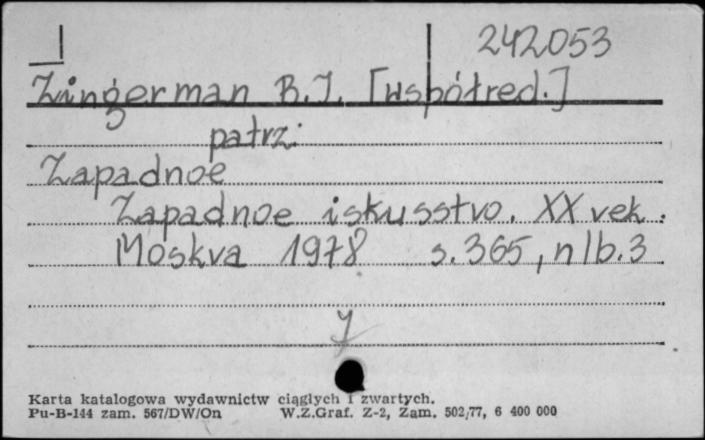 242053
Zingerman B.I. [współred.]
patrz:
Zapadnoe
Zapadnoe iskusstvo. XX vek.
Moskva 1978 s. 365, nlb. 3
Karta katalogowa wydawnictw ciągłych i zwartych.
Pu-B-144 zam. 567/DW/On W.Z.Graf. Z-2, Zam. 502/77, 6 400 000